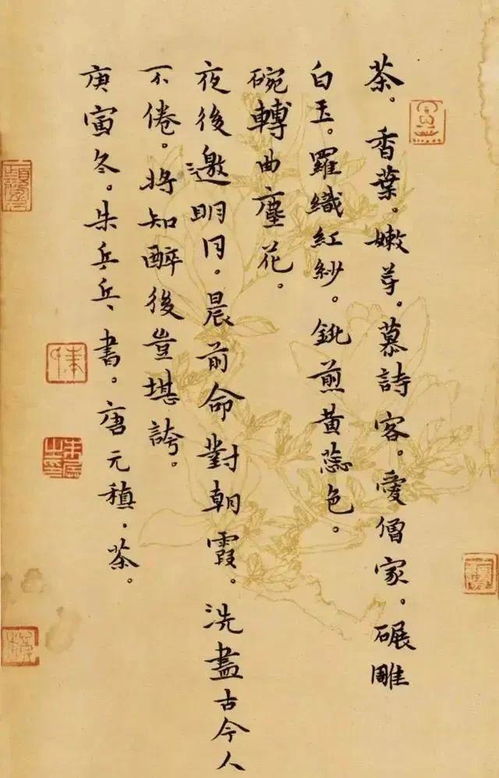 茶。香葉。嫩芽。慕詩客。愛僧家。碾雕
白玉。羅織紅紗。銚煎黃蕊色。
碗轉曲塵花。
夜後邀明月。晨前命對朝霞。洗盡古今人
不倦。將知醉後豈堪誇。
庚寅冬。朱乒乓書。唐元稹.茶。